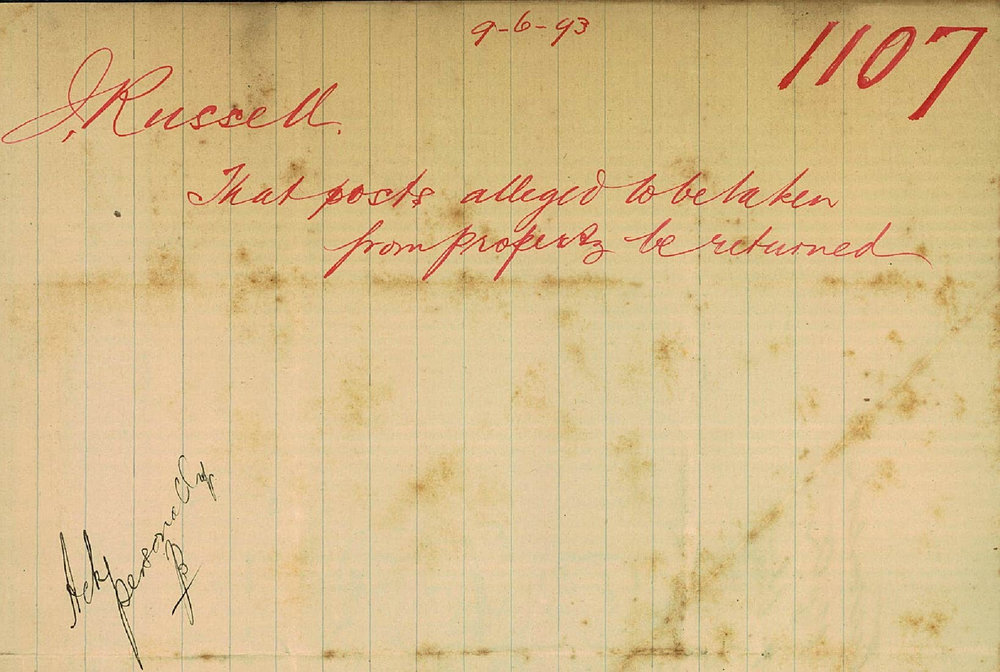 9-6-93
1107
J, Russell.
That posts alleged to be taken
from property be returned
Ack personally